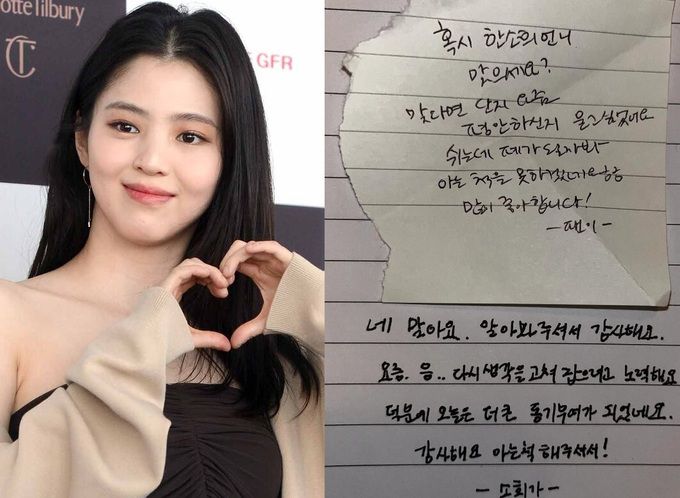 otte Tilbury
CT
GFR
혹시 한소희언니
맞으세요?
맞다면 단지 요즘
평안하신지 묻고싶었어요
쉬는데 폐가 될까봐
아는 척을 못하겠어요ㅎㅎ
많이 좋아합니다!
-팬이-
네 맞아요. 알아봐주셔서 감사해요.
요즘. 음.. 다시 생각을 고쳐 잡으려고 노력해요
덕분에 오늘은 더 큰 동기부여가 되었네요.
감사해요 아는척 해주셔서!
- 소희가 -